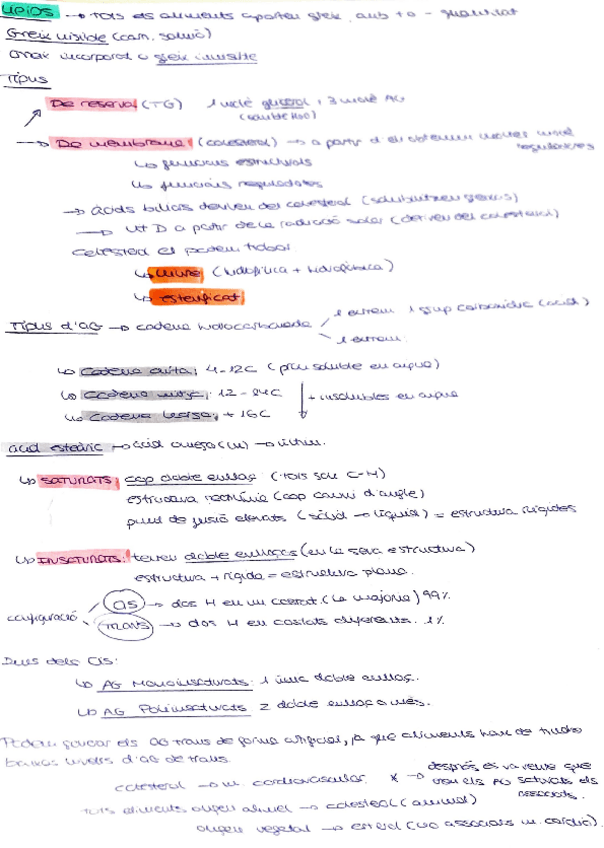 LÍPIDS → TOTS els aliments aporten greix, amb + o - quantitat
Greix visible (carn, salmó)
Greix incorporat o greix invisible
Tipus
De reserva (TG) 1 molè glicerol + 3 molè AG
→ De membrana (colesterol) → a partir d'ell obtenim moltes molè reguladores
↳ funcions estructurals
↳ funcions reguladores
→ àcids biliars deriven del colesterol (solubilitzen greixos)
→ Vit D a partir de la radiació solar (deriven del colesterol)
Colesterol el podem trobar
↳ lliure (hidrofílica + hidrofòbica)
↳ esterificat
Tipus d'AG → cadena hidrocarbonada
1 extrem 1 grup carboxílic (àcid)
1 extrem
↳ Cadena curta: 4-12C (poc soluble en aigua)
↳ Cadena mitja: 12-
↳ Cadena llarga: + 16C
+ insolubles en aigua
àcid esteàric →
↳ SATURATS: cap doble enllaç (tots són C-H)
estructura rectilínia (cap canvi d'angle)
punt de fusió elevats (sòlid → líquid) = estructura rígides
↳ INSATURATS: tenen doble enllaços (en la seva estructura)
estructura + rígida = estructura plana.
configuració
CIS → dos H en un costat. (la majoria) 99%
TRANS → dos H en costats diferents. 1%
Dins dels CIS:
↳ AG Monoinsaturats: 1 únic doble enllaç.
↳ AG Poliinsaturats 2 doble enllaç o més.
Podem forçar els AG trans de forma artificial, ja que aliments han de tindre
baixos nivells d'AG de trans.
colesterol → m. cardiovascular * → després es va veure que
són els AG saturats els
associats.
Tots aliments origen animal → colesterol (animal)
origen vegetal → esterol (NO associats m. cardio).